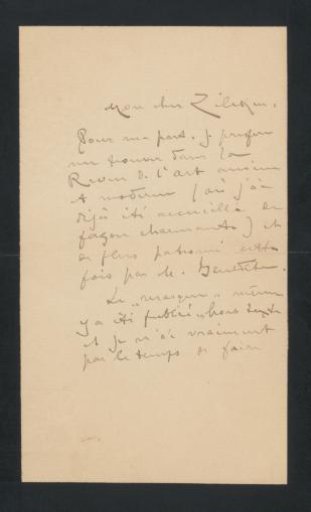 Mon cher Zilcken.
Pour ma part, je préfère
me trouver dans la
Revue de l'art ancien
et moderne (où j'ai
déjà été recueilli de
façon charmante) et
de plus patronné cette
fois par M.
Le même
y a été publié hors texte
et je n'ai vraiment
pas le temps de faire